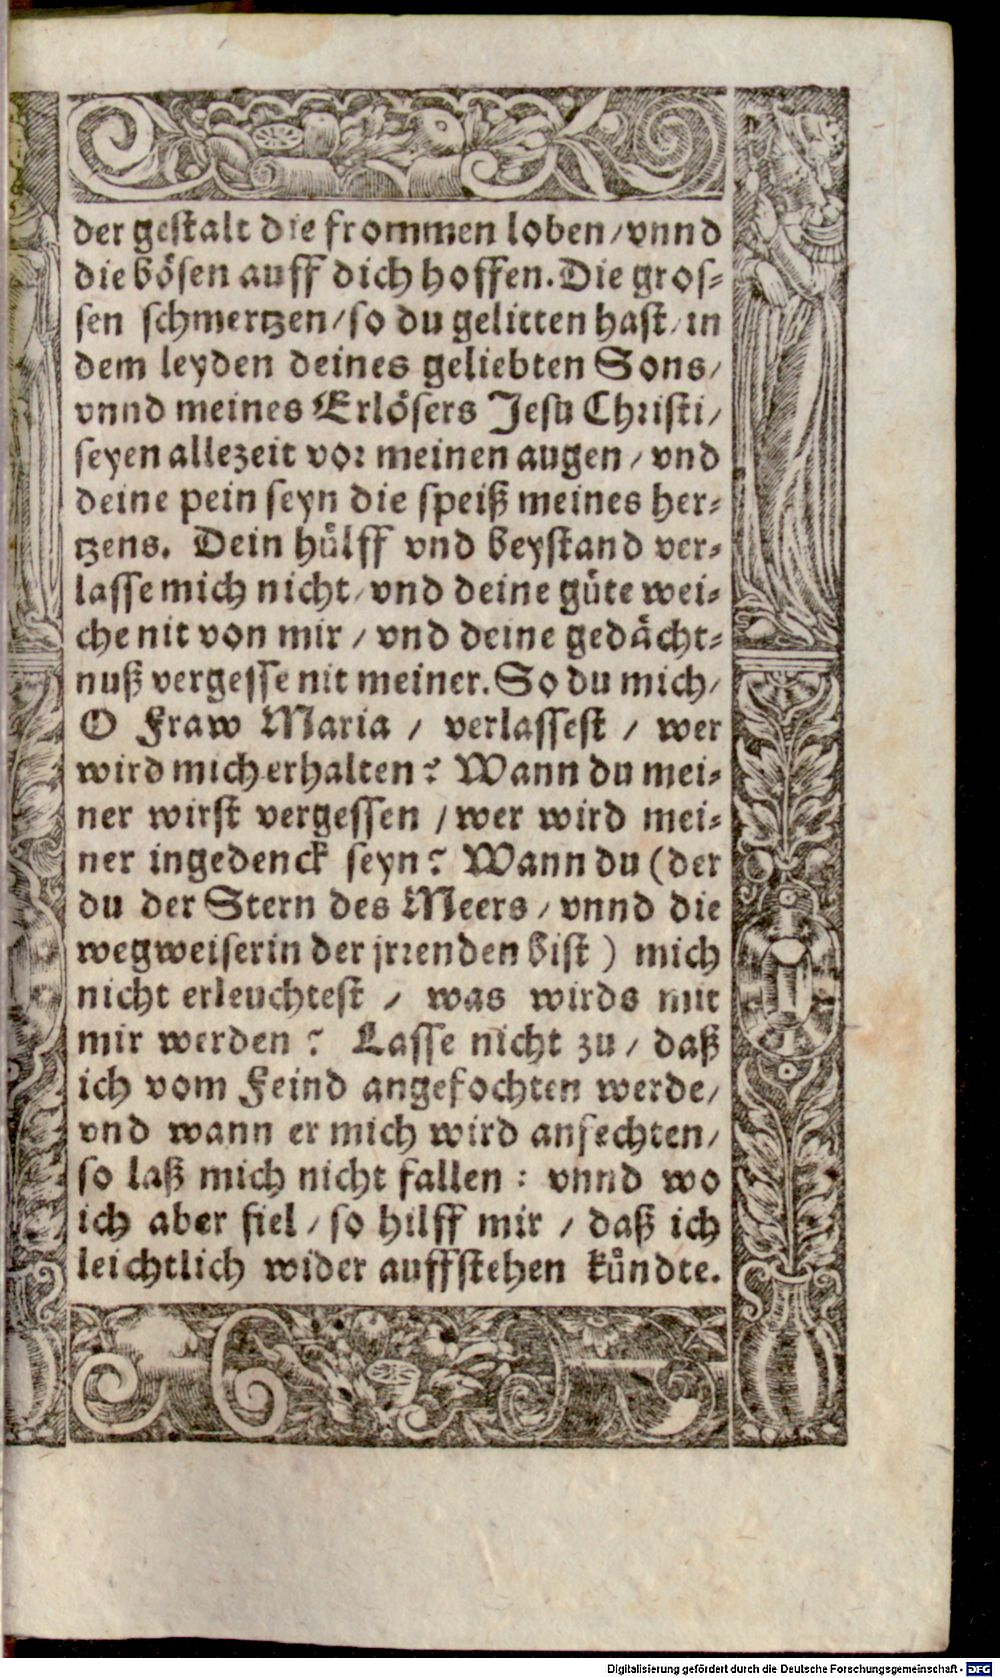 der gestalt die frommen loben/vnnd
die bösen auff dich hoffen. Die gros-
sen schmertzen/so du gelitten hast/in
dem leyden deines geliebten Sons/
vnnd meines Erlösers Jesu Christi/
seyen allezeit vor meinen augen/vnd
deine pein seyn die speiß meines her-
tzens. Dein hülff vnd beystand ver-
lasse mich nicht/vnd deine güte wei-
che nit von mir/vnd deine gedächt-
nuß vergesse nit meiner. So du mich/
O Fraw Maria/verlassest/wer
wird mich erhalten? Wann du mei-
ner wirst vergessen/wer wird mei-
ner ingedenck seyn? Wann du (der
du der Stern des Meers/vnnd die
wegweiserin der jrrenden bist) mich
nicht erleuchtest/was wirds mit
mir werden? Lasse nicht zu/daß
ich vom Feind angefochten werde/
vnd wann er mich wird anfechten/
so laß mich nicht fallen: vnnd wo
ich aber fiel/so hilff mir/daß ich
leichtlich wider auffstehen kündte.
Digitalisierung gefördert durch die Deutsche Forschungsgemeinschaft - DFG